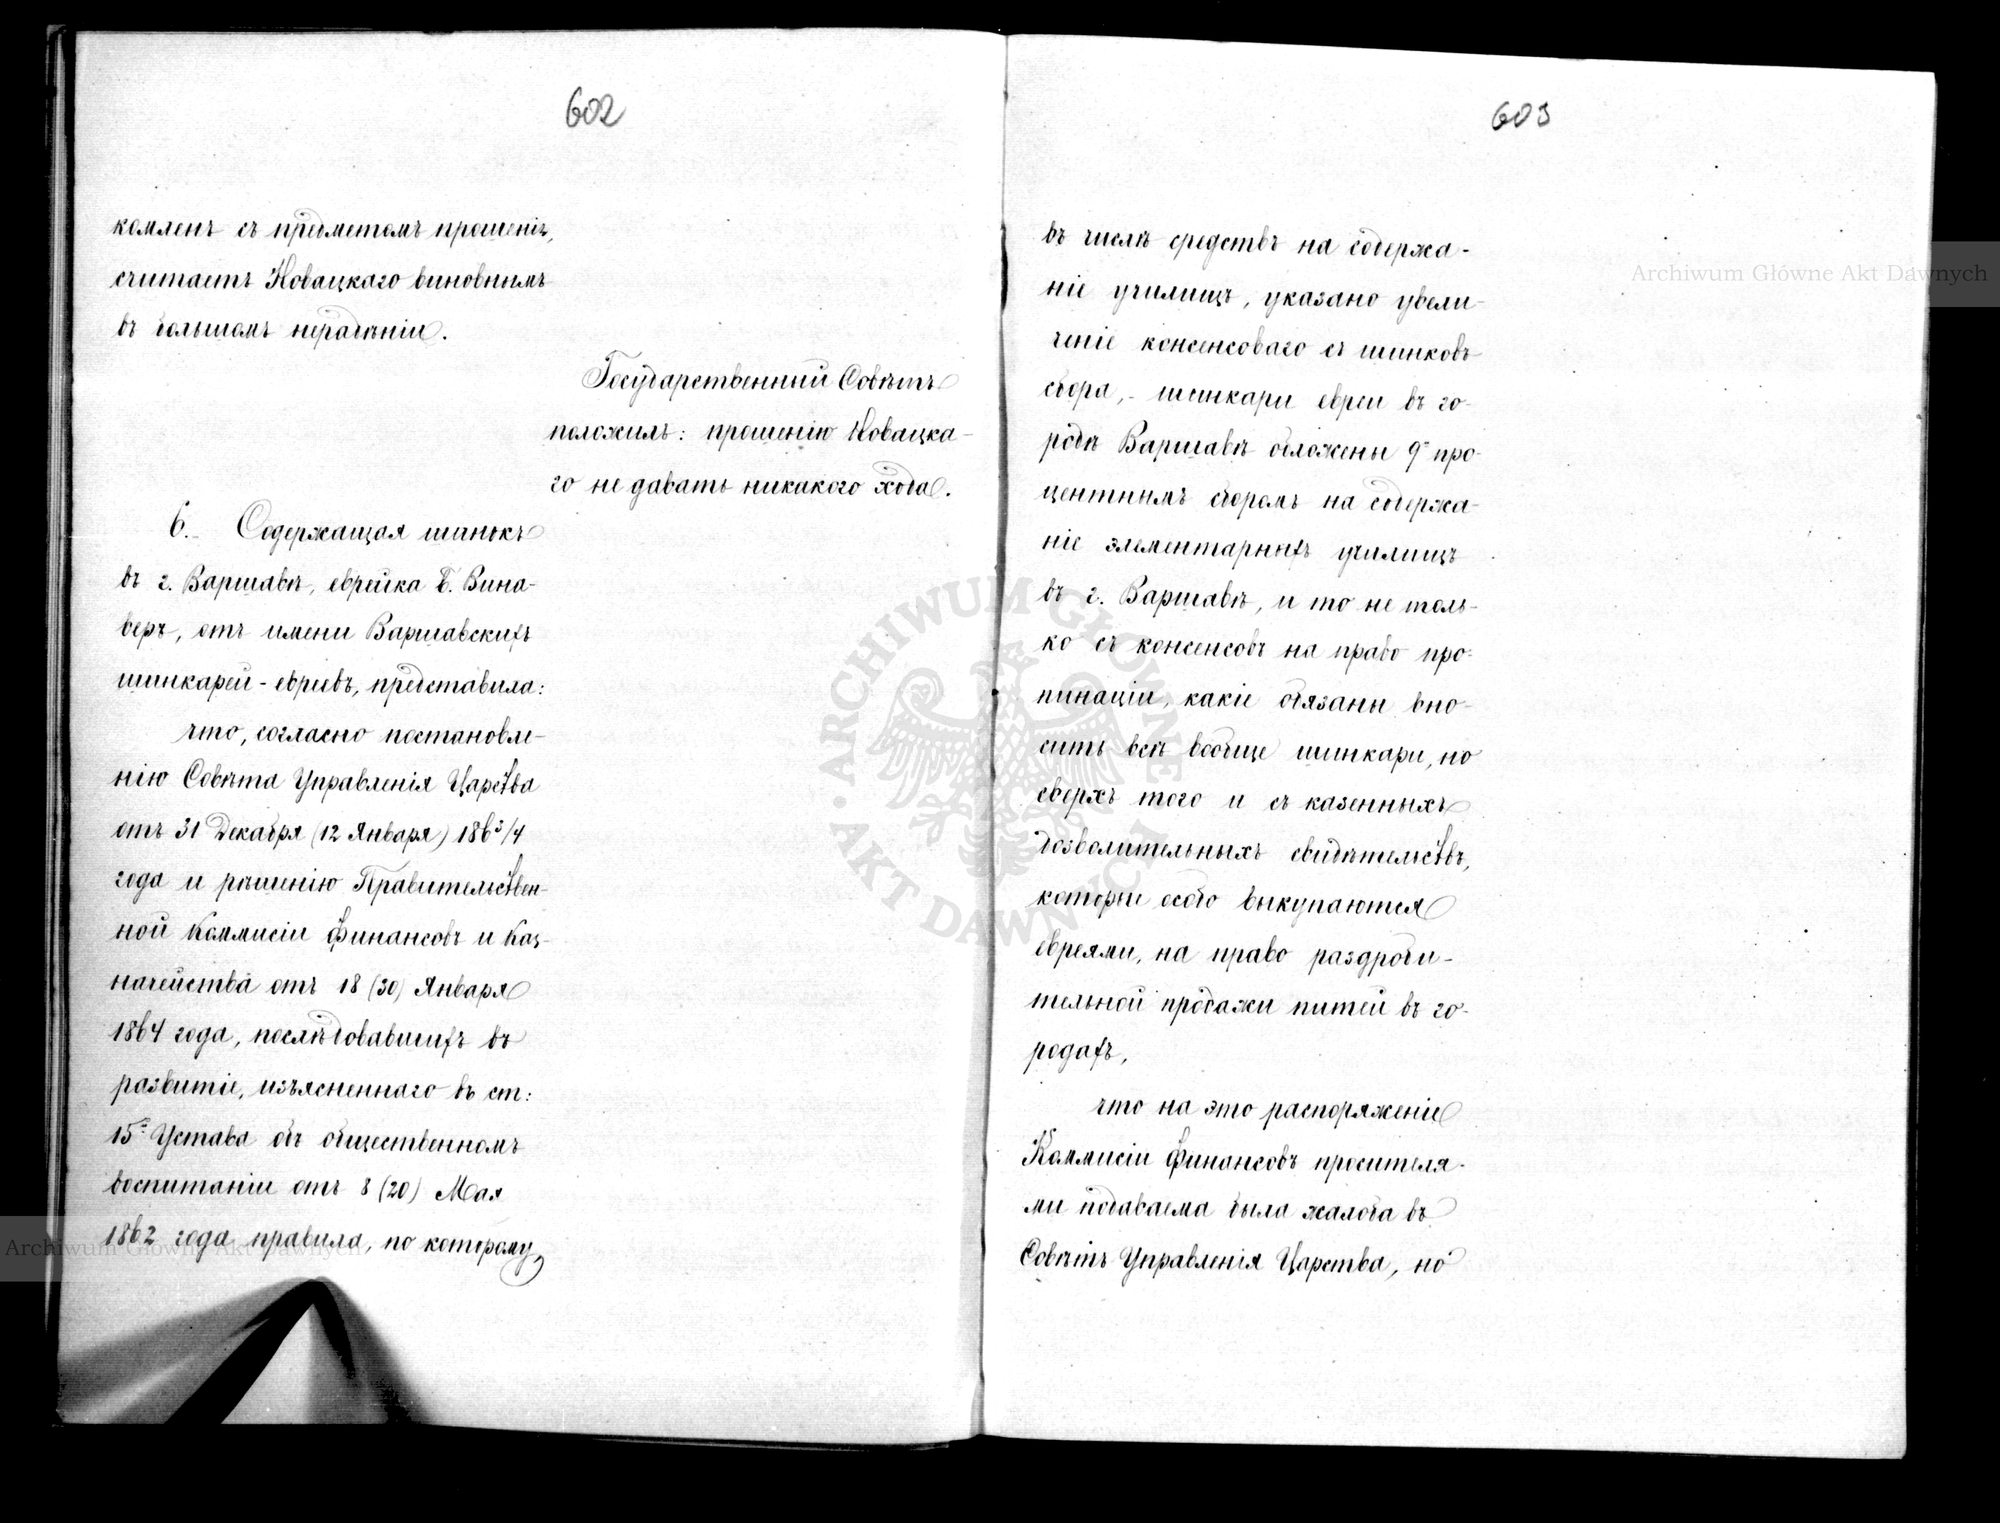 602
комленъ съ предметомъ прошенія,
считаетъ Новацкаго виновнымъ
въ большомъ нерадѣніи.
Государственный Совѣтъ
положилъ: прошенію Новацка-
го не давать никакого хода.
6. Содержащая шинокъ
въ г. Варшавѣ, еврейка Б. Вина-
веръ, отъ имени Варшавскихъ
шинкарей-евреевъ, представила:
что, согласно постановле-
нію Совѣта Управленія Царства
отъ 31 Декабря (12 Января) 1863/4
года и рѣшенію Правительствен-
ной Коммисіи Финансовъ и Каз-
начейства отъ 18 (30) Января
1864 года, послѣдовавшихъ въ
развитіе, изъясненнаго въ ст:
15й Устава объ общественномъ
воспитаніи отъ 8 (20) Мая
1862 года правила, по которому,
603
въ числѣ средствъ на содержа-
ніе училищъ, указано увели-
ченіе консенсоваго съ шинковъ
сбора,- шинкари евреи въ го-
родѣ Варшавѣ обложены 9и про-
центнымъ сборомъ на содержа-
ніе элементарныхъ училищъ
въ г. Варшавѣ, и то не толь-
ко съ консенсовъ на право про-
пинаціи, какіе обязаны вно-
сить всѣ вообще шинкари, но
сверхъ того и съ казенныхъ
дозволительныхъ свидѣтельствъ,
которыя особо выкупаются
евреями, на право раздроби-
тельной продажи питей въ го-
родахъ,
что на это распоряженіе
Коммисіи Финансовъ просителя-
ми подаваема была жалоба въ
Совѣтъ Управленія Царства, но
Archiwum Główne Akt Dawnych
Archiwum Główne Akt Dawnych
ARCHIWUM GŁÓWNE · AKT DAWNYCH ·